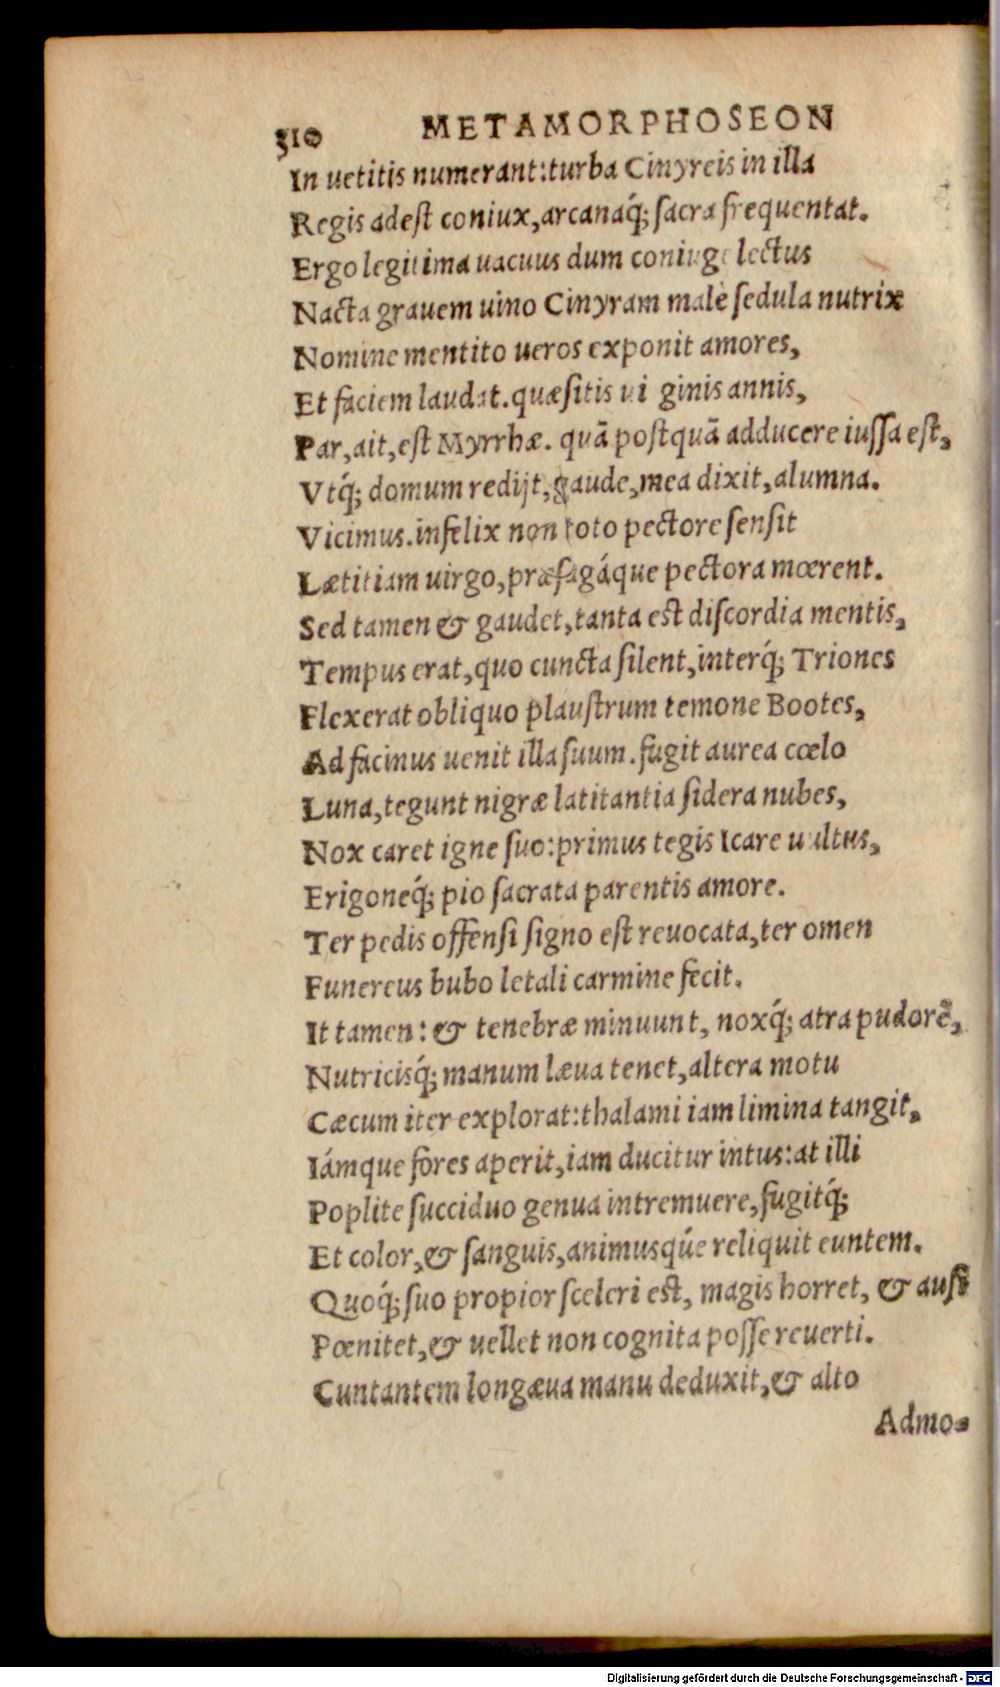 310 METAMORPHOSEON
In uetitis numerant:turba Cinyreis in illa
Regis adest coniux,arcanaq́; sacra frequentat.
Ergo legitima uacuus dum coniuge lectus
Nacta grauem uino Cinyram malè sedula nutrix
Nomine mentito ueros exponit amores,
Et faciem laudat.quæsitis ui ginis annis,
Par,ait,est Myrrhæ. quā postquā adducere iussa est,
Vtq́; domum redijt,gaude,mea dixit,alumna.
Vicimus.infelix non toto pectore sensit
Lætitiam uirgo,præsagáque pectora mœrent.
Sed tamen & gaudet,tanta est discordia mentis,
Tempus erat,quo cuncta silent,interq́; Triones
Flexerat obliquo plaustrum temone Bootes,
Ad facinus uenit illa suum.fugit aurea cœlo
Luna,tegunt nigræ latitantia sidera nubes,
Nox caret igne suo:primus tegis Icare uultus,
Erigoneq́; pio sacrata parentis amore.
Ter pedis offensi signo est reuocata,ter omen
Funereus bubo letali carmine fecit.
It tamen: & tenebræ minuunt, noxq́; atra pudorē,
Nutricisq́; manum læua tenet,altera motu
Cæcum iter explorat:thalami iam limina tangit,
Iámque fores aperit,iam ducitur intus:at illi
Poplite succiduo genua intremuere,fugitq́;
Et color,& sanguis,animusq́ue reliquit euntem.
Quoq́; suo propior sceleri est, magis horret, & ausi
Pœnitet,& uellet non cognita posse reuerti.
Cuntantem longæua manu deduxit,& alto
Admo-
Digitalisierung gefördert durch die Deutsche Forschungsgemeinschaft - DFG